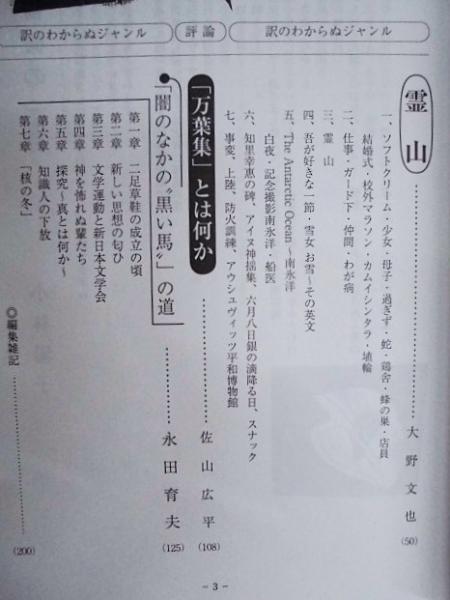 訳のわからぬジャンル
評論
訳のわからぬジャンル
霊山
大野文也
(50)
一、ソフトクリーム・少女・母子・過ぎず・蛇・鶏舎・蜂の巣・店員
結婚式・校外マラソン・カムイシンタラ・埴輪
二、仕事・ガード下・仲間・わが病
三、霊山
四、吾が好きな一節・雪女 お雪～その英文
五、The Antarctic Ocean～南氷洋
白夜・記念撮影南氷洋・船医
六、知里幸恵の碑、アイヌ神揺集、六月八日銀の滴降る日、スナック
七、事変、上陸、防火訓練、アウシュヴィッツ平和博物館
「万葉集」とは何か
佐山広平
(108)
「闇のなかの〝黒い馬〟」の道
永田育夫
(125)
第一章 二足草鞋の成立の頃
第二章 新しい思想の匂ひ
第三章 文学運動と新日本文学会
第四章 神を怖れぬ輩たち
第五章 探究～真とは何か～
第六章 知識人の下放
第七章 「核の冬」
◎編集雑記
(200)
- 3 -